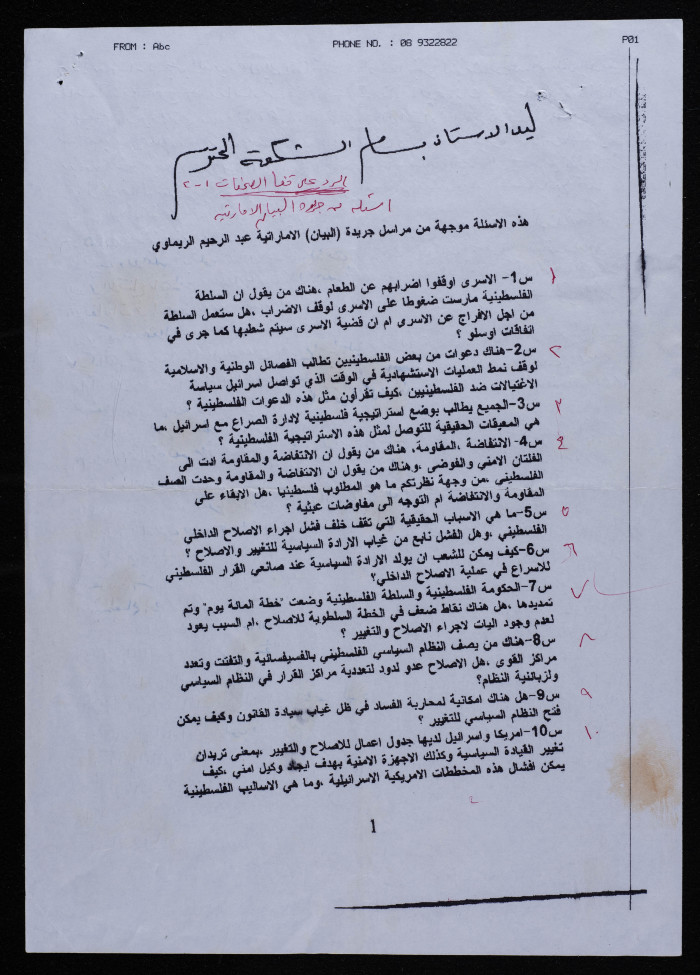 FROM : Abc PHONE NO. : 08 9322822 P01
ليد الاستاذ بسام الشكعة المحترم
الرد على قفا الصفحات ١-٢
اسئلة من جريدة البيان الاماراتية
هذه الاسئلة موجهة من مراسل جريدة (البيان) الاماراتية عبد الرحيم الريماوي
١ س1- الاسرى اوقفوا اضرابهم عن الطعام ،هناك من يقول ان السلطة
الفلسطينية مارست ضغوطا على الاسرى لوقف الاضراب ،هل ستعمل السلطة
من اجل الافراج عن الاسرى ام ان قضية الاسرى سيتم شطبها كما جرى في
اتفاقات اوسلو ؟
٢ س2-هناك دعوات من بعض الفلسطينيين تطالب الفصائل الوطنية والاسلامية
لوقف نمط العمليات الاستشهادية في الوقت الذي تواصل اسرائيل سياسة
الاغتيالات ضد الفلسطينيين ،كيف تقرأون مثل هذه الدعوات الفلسطينية ؟
٣ س3-الجميع يطالب بوضع استراتيجية فلسطينية لادارة الصراع مع اسرائيل ،ما
هي المعيقات الحقيقية للتوصل لمثل هذه الاستراتيجية الفلسطينية ؟
٤ س4- الانتفاضة ،المقاومة، هناك من يقول ان الانتفاضة والمقاومة ادت الى
الفلتان الامني والفوضى ،وهناك من يقول ان الانتفاضة والمقاومة وحدت الصف
الفلسطيني ،من وجهة نظركم ما هو المطلوب فلسطينيا ،هل الابقاء على
المقاومة والانتفاضة ام التوجه الى مفاوضات عبثية ؟
٥ س5-ما هي الاسباب الحقيقية التي تقف خلف فشل اجراء الاصلاح الداخلي
الفلسطيني ،وهل الفشل نابع من غياب الارادة السياسية للتغيير والاصلاح ؟
٦ س6-كيف يمكن للشعب ان يولد الارادة السياسية عند صانعي القرار الفلسطيني
للاسراع في عملية الاصلاح الداخلي؟
٧ س7-الحكومة الفلسطينية والسلطة الفلسطينية وضعت "خطة المائة يوم" وتم
تمديدها ،هل هناك نقاط ضعف في الخطة السلطوية للاصلاح ،ام السبب يعود
لعدم وجود اليات لاجراء الاصلاح والتغيير ؟
٨ س8-هناك من يصف النظام السياسي الفلسطيني بالفسيفسائية والتفتت وتعدد
مراكز القوى ،هل الاصلاح عدو لدود لتعددية مراكز القرار في النظام السياسي
ولزبائنية النظام؟
٩ س9-هل هناك امكانية لمحاربة الفساد في ظل غياب سيادة القانون وكيف يمكن
فتح النظام السياسي للتغيير ؟
١٠ س10-امريكا واسرائيل لديها جدول اعمال للاصلاح والتغيير ،بمعنى تريدان
تغيير القيادة السياسية وكذلك الاجهزة الامنية بهدف ايجاد وكيل امني ،كيف
يمكن افشال هذه المخططات الامريكية الاسرائيلية ،وما هي الاساليب الفلسطينية
1